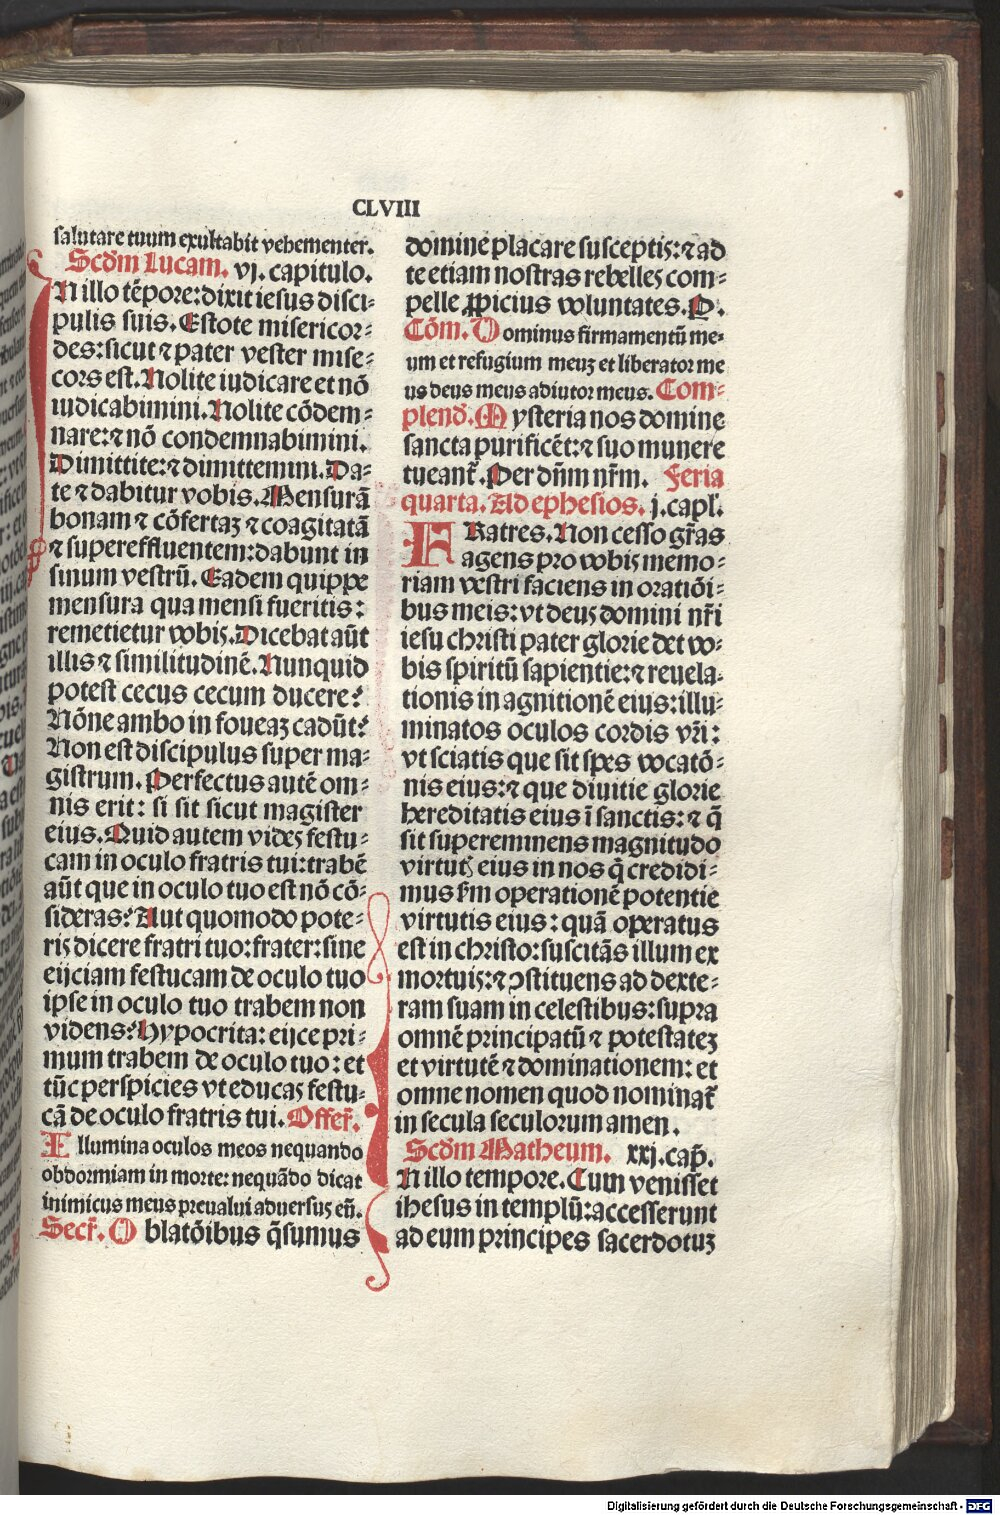 CLVIII
salutare tuum exultabit vehementer.
Scd̄m Lucam. vj. capitulo.
IN illo tēpore: dixit iesus disci⸗
pulis suis. Estote misericor⸗
des: sicut ⁊ pater vester mise⸗
cors est. Nolite iudicare et nō
iudicabimini. Nolite cōdem⸗
nare: ⁊ nō condemnabimini.
Dimittite: ⁊ dimittemini. Da⸗
te ⁊ dabitur vobis. Mensurā
bonam ⁊ cōfertaꝫ ⁊ coagitatā
⁊ supereffluentem: dabunt in
sinum vestrū. Eadem quippe
mensura qua mensi fueritis:
remetietur vobis. Dicebat aūt
illis ⁊ similitudinē. Nunquid
potest cecus cecum ducere?
Nōne ambo in foueaꝫ cadūt?
Non est discipulus super ma⸗
gistrum. Perfectus autē om⸗
nis erit: si sit sicut magister
eius. Quid autem vides festu⸗
cam in oculo fratris tui: trabē
aūt que in oculo tuo est nō cō⸗
sideras? Aut quomodo pote⸗
ris dicere fratri tuo: frater: sine
eijciam festucam de oculo tuo
ipse in oculo tuo trabem non
videns? Hypocrita: eijce pri⸗
mum trabem de oculo tuo: et
tūc perspicies vt educas festu⸗
cā de oculo fratris tui. Offer̄.
Illumina oculos meos nequando
obdormiam in morte: nequādo dicat
inimicus meus preualui aduersus eū.
Secr̄. Oblatōibus q̄sumus
domine placare susceptis: ⁊ ad
te etiam nostras rebelles com⸗
pelle ꝓpicius voluntates. P.
Cōm. Dominus firmamentū me⸗
um et refugium meuꝫ et liberator me
us deus meus adiutor meus. Com⸗
plend̄. Mysteria nos domine
sancta purificēt: ⁊ suo munere
tueant̄. Per dn̄m nr̄m. Feria
quarta. Ad ephesios. j. capl̄.
FRatres. Non cesso gr̄as
agens pro vobis memo⸗
riam vestri faciens in oratiōi⸗
bus meis: vt deus domini nr̄i
iesu christi pater glorie det vo⸗
bis spiritū sapientie: ⁊ reuela⸗
tionis in agnitionē eius: illu⸗
minatos oculos cordis vr̄i:
vt sciatis que sit spes vocatō⸗
nis eius: ⁊ que diuitie glorie
hereditatis eius ī sanctis: ⁊ q̄
sit supereminens magnitudo
virtutꝭ eius in nos q̄ credidi⸗
mus ẜm operationē potentie
virtutis eius: quā operatus
est in christo: suscitās illum ex
mortuis: ⁊ ꝯstituens ad dexte⸗
ram suam in celestibus: supra
omnē principatū ⁊ potestateꝫ
et virtutē ⁊ dominationem: et
omne nomen quod nominat̄
in secula seculorum amen.
Scd̄m Matheum. xxj. cap̄.
IN illo tempore. Cum venisset
ihesus in templū: accesserunt
ad eum principes sacerdotuꝫ
Digitalisierung gefördert durch die Deutsche Forschungsgemeinschaft - DFG